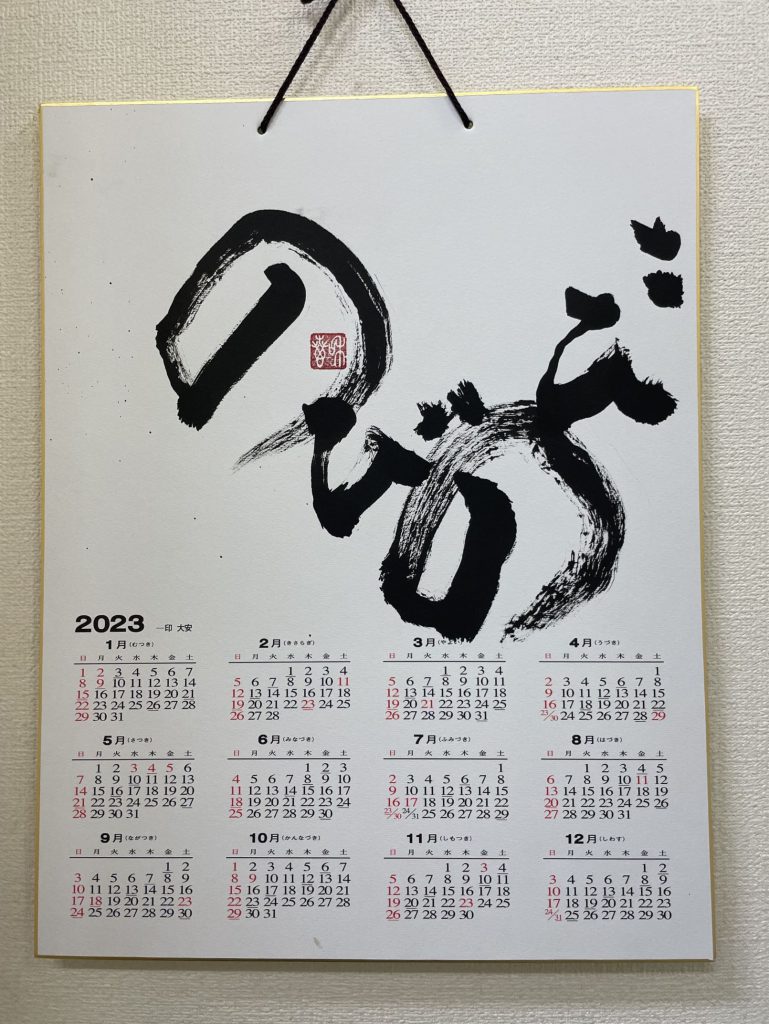 のびのび
2023 ―印 大安
1月(むつき)
日 月 火 水 木 金 土
1 2 3 4 5 6 7
8 9 10 11 12 13 14
15 16 17 18 19 20 21
22 23 24 25 26 27 28
29 30 31
2月(きさらぎ)
日 月 火 水 木 金 土
1 2 3 4
5 6 7 8 9 10 11
12 13 14 15 16 17 18
19 20 21 22 23 24 25
26 27 28
3月(や
日 月 火 水 木 金 土
1 2 3 4
5 6 7 8 9 10 11
12 13 14 15 16 17 18
19 20 21 22 23 24 25
26 27 28 29 30 31
4月(うづき)
日 月 火 水 木 金 土
1
2 3 4 5 6 7 8
9 10 11 12 13 14 15
16 17 18 19 20 21 22
23/30 24 25 26 27 28 29
5月(さつき)
日 月 火 水 木 金 土
1 2 3 4 5 6
7 8 9 10 11 12 13
14 15 16 17 18 19 20
21 22 23 24 25 26 27
28 29 30 31
6月(みなづき)
日 月 火 水 木 金 土
1 2 3
4 5 6 7 8 9 10
11 12 13 14 15 16 17
18 19 20 21 22 23 24
25 26 27 28 29 30
7月(ふみづき)
日 月 火 水 木 金 土
1
2 3 4 5 6 7 8
9 10 11 12 13 14 15
16 17 18 19 20 21 22
23/30 24/31 25 26 27 28 29
8月(はづき)
日 月 火 水 木 金 土
1 2 3 4 5
6 7 8 9 10 11 12
13 14 15 16 17 18 19
20 21 22 23 24 25 26
27 28 29 30 31
9月(ながつき)
日 月 火 水 木 金 土
1 2
3 4 5 6 7 8 9
10 11 12 13 14 15 16
17 18 19 20 21 22 23
24 25 26 27 28 29 30
10月(かんなづき)
日 月 火 水 木 金 土
1 2 3 4 5 6 7
8 9 10 11 12 13 14
15 16 17 18 19 20 21
22 23 24 25 26 27 28
29 30 31
11月(しもつき)
日 月 火 水 木 金 土
1 2 3 4
5 6 7 8 9 10 11
12 13 14 15 16 17 18
19 20 21 22 23 24 25
26 27 28 29 30
12月(しわす)
日 月 火 水 木 金 土
1 2
3 4 5 6 7 8 9
10 11 12 13 14 15 16
17 18 19 20 21 22 23
24/31 25 26 27 28 29 30